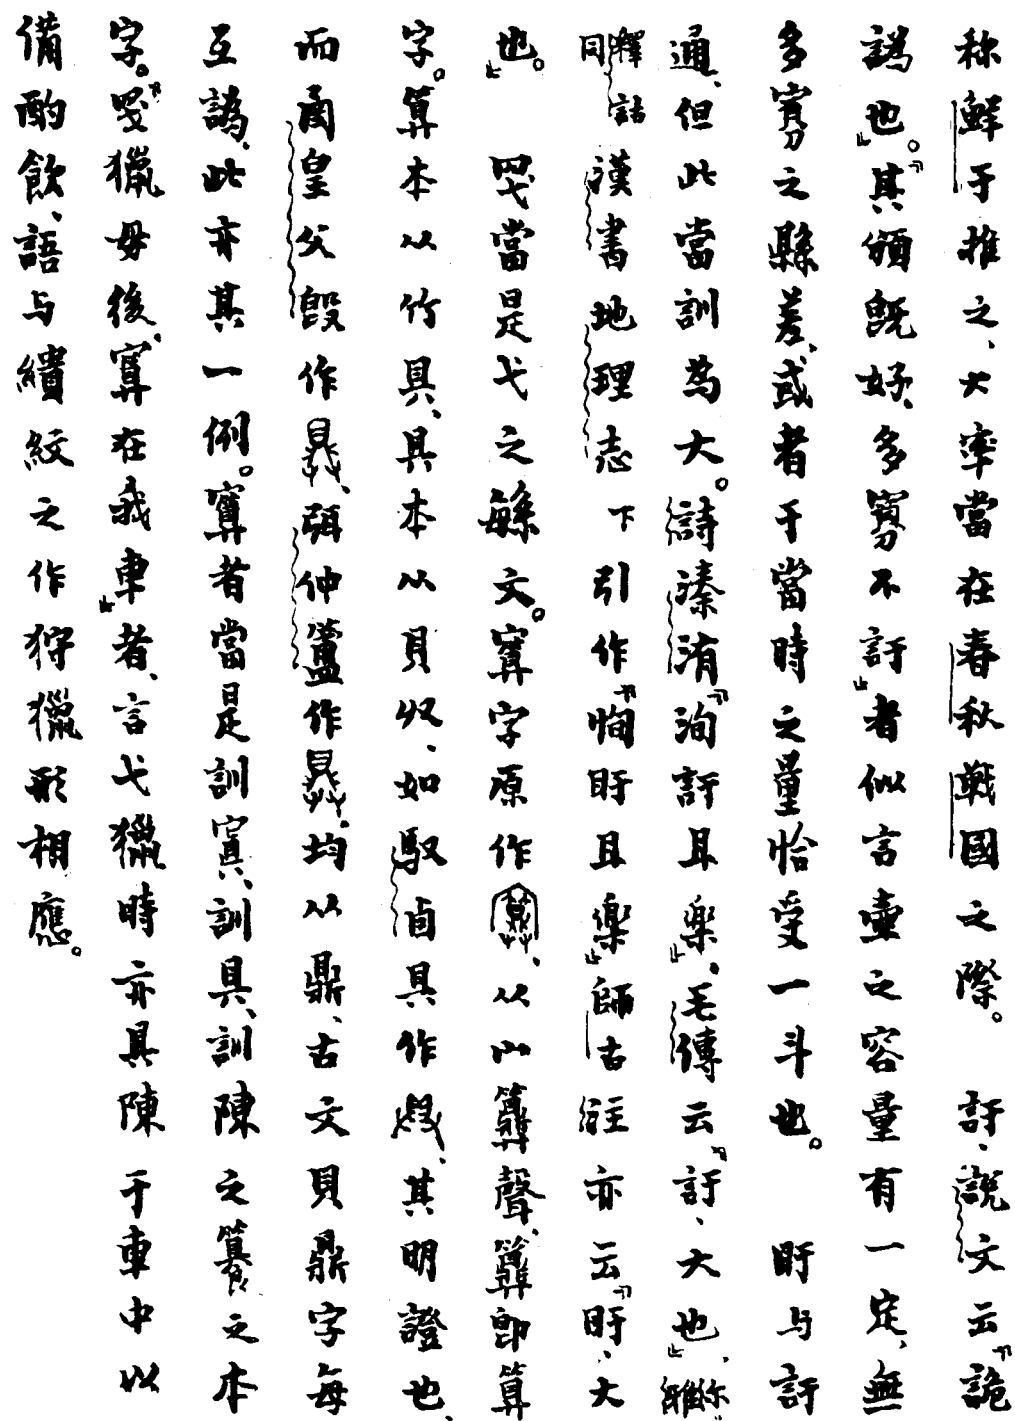 称鮮于推之、大率當在春秋戰國之際。　訏、說文云「詭
譌也。」「其頒既好、多寡不訏」者似言壷之容量有一定、無
多寡之縣差、或者于當時之量恰受一斗也。　盱与訏
通、但此當訓為大。詩溱洧「洵訏且楽」、毛傳云「訏、大也」、尔雅
釋詁同　漢書地理志下引作「恂盱且楽」師古注亦云「盱、大
也。」　當是弋之緐文。字原作、从山聲、即算
字。算本从竹具、具本从貝収、如馭卣具作、其明證也、
而圅皇父𣪘作、弭仲簠作、均从鼎、古文貝鼎字每
互譌、此亦其一例。者當是訓、訓具、訓陳之籑之本
字。「獵毋後、在我車」者、言弋獵時亦具陳于車中以
備酌飲、語与繢紋之作狩獵形相應。